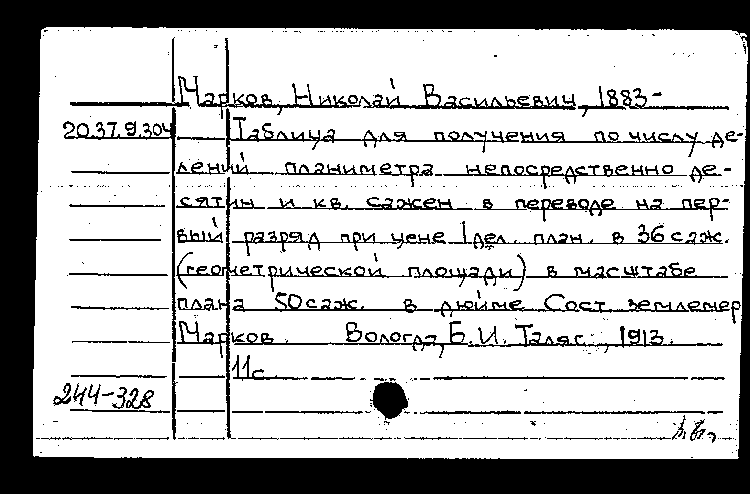 Марков, Николай Васильевич, 1883-
20.37.9.304 Таблица для получения по числу де-
лений планиметра непосредственно де-
сятин и кв. сажен в переводе на пер-
вый разряд при цене 1 дел. план. в 36 саж.
(геометрической площади) в масштабе
плана 50 саж. в дюйме Сост землемер
Марков. Вологда, Б. И. Таляс., 1913.
11с.
244-328